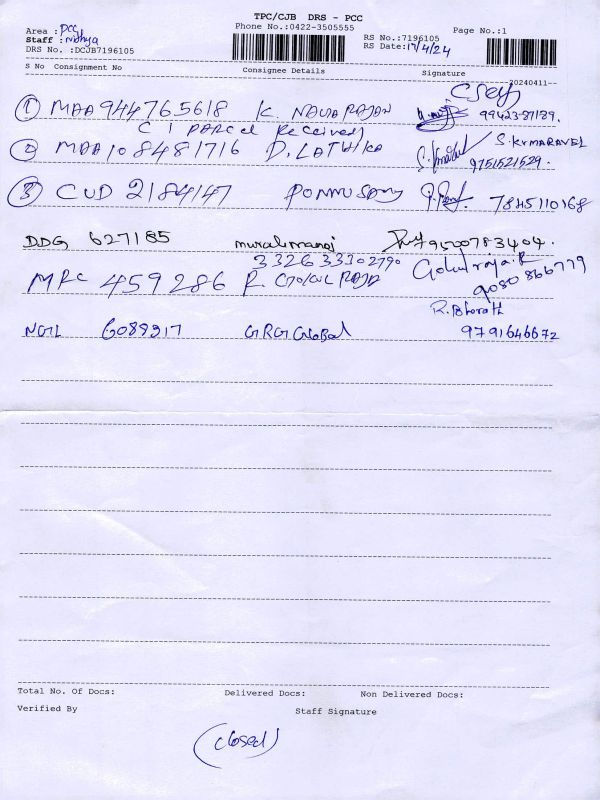 TPC/CJB DRS - PCC
Phone No.:0422-3505555
Area : PCC
Staff : nithya
DRS No. :DCJB7196105
RS No.:7196105
RS Date:17/4/24
Page No.:1
S No Consignment No Consignee Details Signature
--20240411--
① MAA944765618 K. NAWARAJAN 9942387139.
(1 PARCEL Received)
② MAA108481716 D. LATHIKA S. KUMARAVEL
9751521529.
③ CUD 2184147 PONNUSAMY 7845110168
DDG 627185 muralimanoj 9500783404.
3326 33302790
MRC 459286 R. GOKUL RAJA Gokulraja.R
9080866779
R. Bharath
NGL 6089317 GRG Global 9791646672
Total No. Of Docs: Delivered Docs: Non Delivered Docs:
Verified By Staff Signature
(closed)